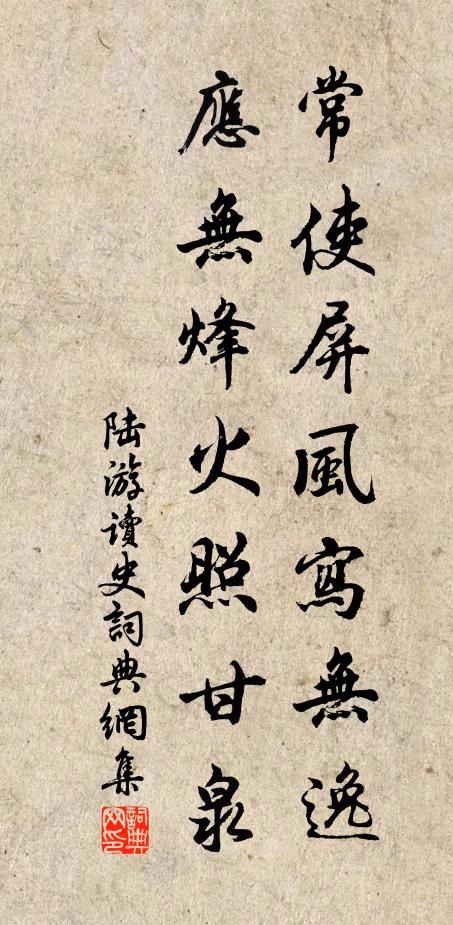 常使屏風寫無逸
應無烽火照甘泉
陆游讀史詞典網集
詞典網印